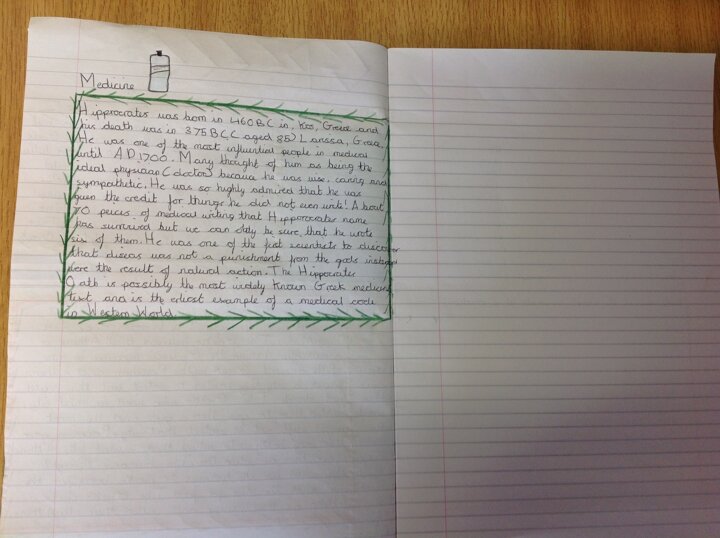 Medicine
Hipprocrates was born in 460BC in, Kos, Greece and
his death was in 375BC,C aged 85) Larissa, Greece.
He was one of the most influential people in medical
until A.D.1700. Many thought of him as being the
ideal physician (doctor) because he was wise, caring and
sympathetic. He was so highly admired that he was
given the credit for things he did not even write! About
70 peices of medical writing that Hipprocrates name
has survived but we can only be sure, that he wrote
six of them. He was one of the first scientists to discover
that diseas was not a punishment from the gods instead
were the result of natural action. The Hipprocrates
Oath is possibly the most widely known Greek medicine
text and is the erliest example of a medical code
in Western World.